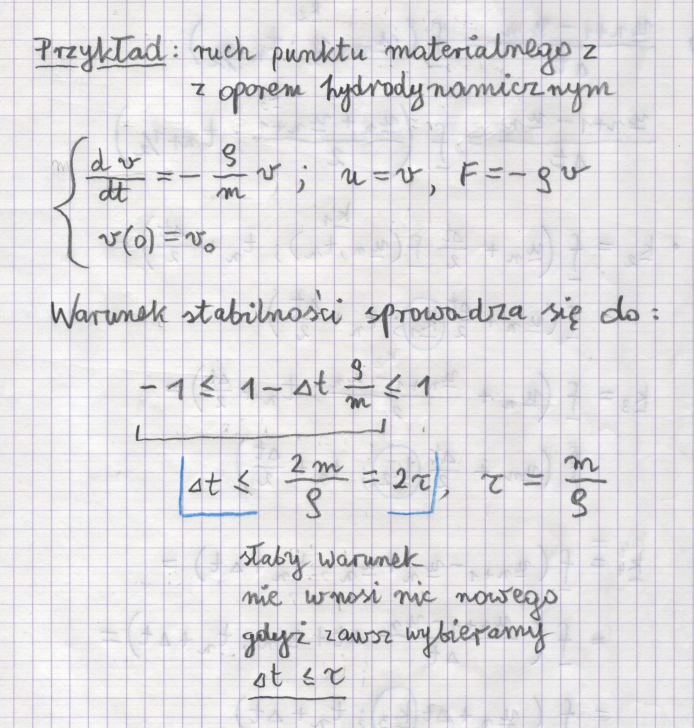 Przykład: ruch punktu materialnego z
z oporem hydrodynamicznym
dv/dt = - ρ/m v ; u = v, F = - ρ v
v(0) = v₀
Warunek stabilności sprowadza się do:
-1 ≤ 1 - Δt ρ/m ≤ 1
Δt ≤ 2m/ρ = 2τ, τ = m/ρ
słaby warunek
nie wnosi nic nowego
gdyż zawsz wybieramy
Δt ≤ τ